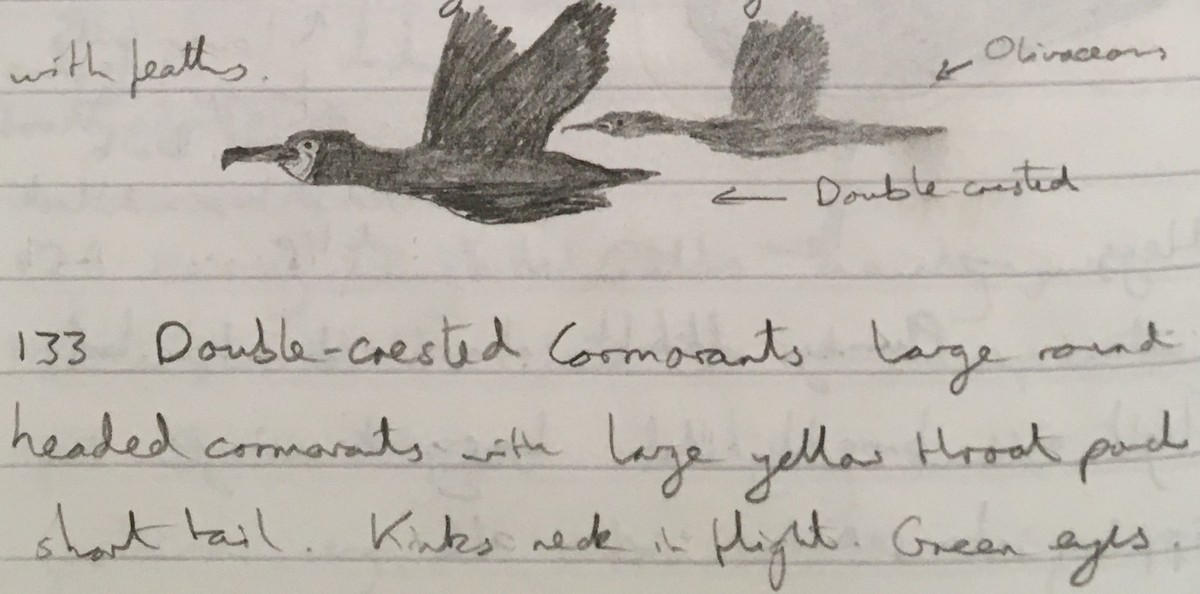 with feaths.
Olivaceous
Double-crested
133 Double-crested Cormorants large round
headed cormorants with large yellow throat pouch
short tail. Kinks neck in flight. Green eyes.